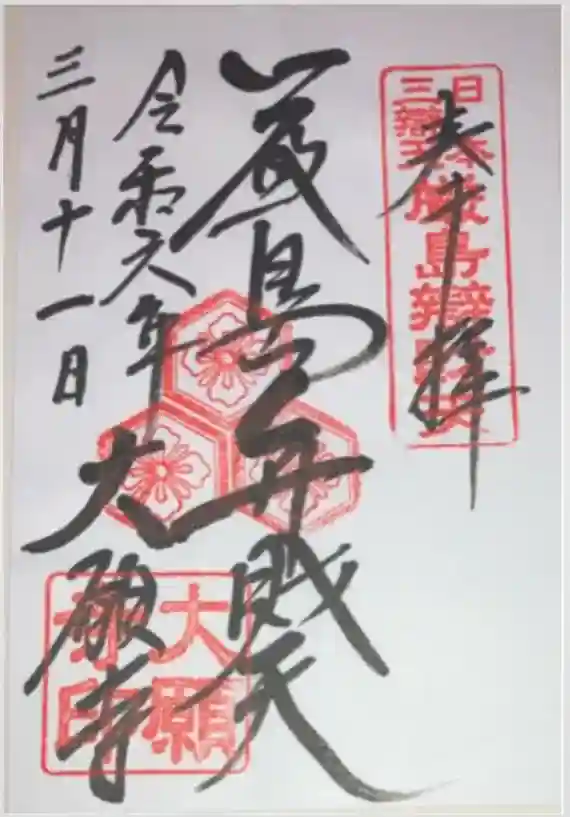 奉拝
日本三辯天
厳島辯財天
厳島弁財天
令和六年
三月十一日
大願寺
大願寺印